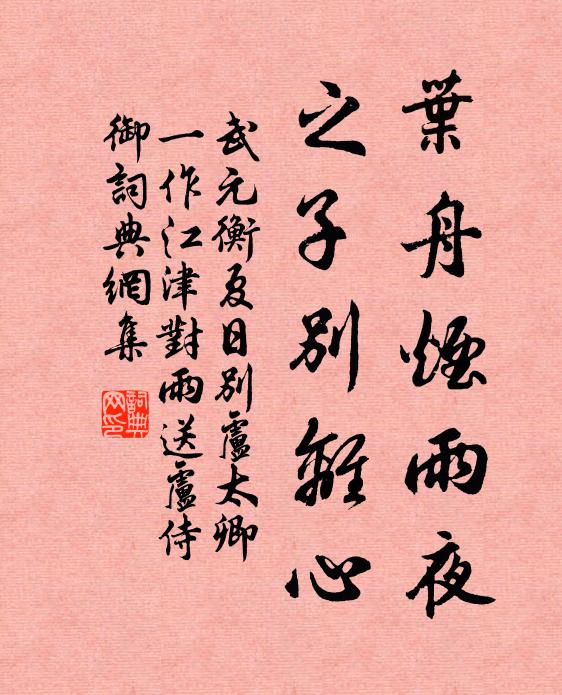 葉舟煙雨夜
之子別離心
武元衡夏日別盧太卿
一作江津對雨送盧侍
御詞典網集
詞典網印